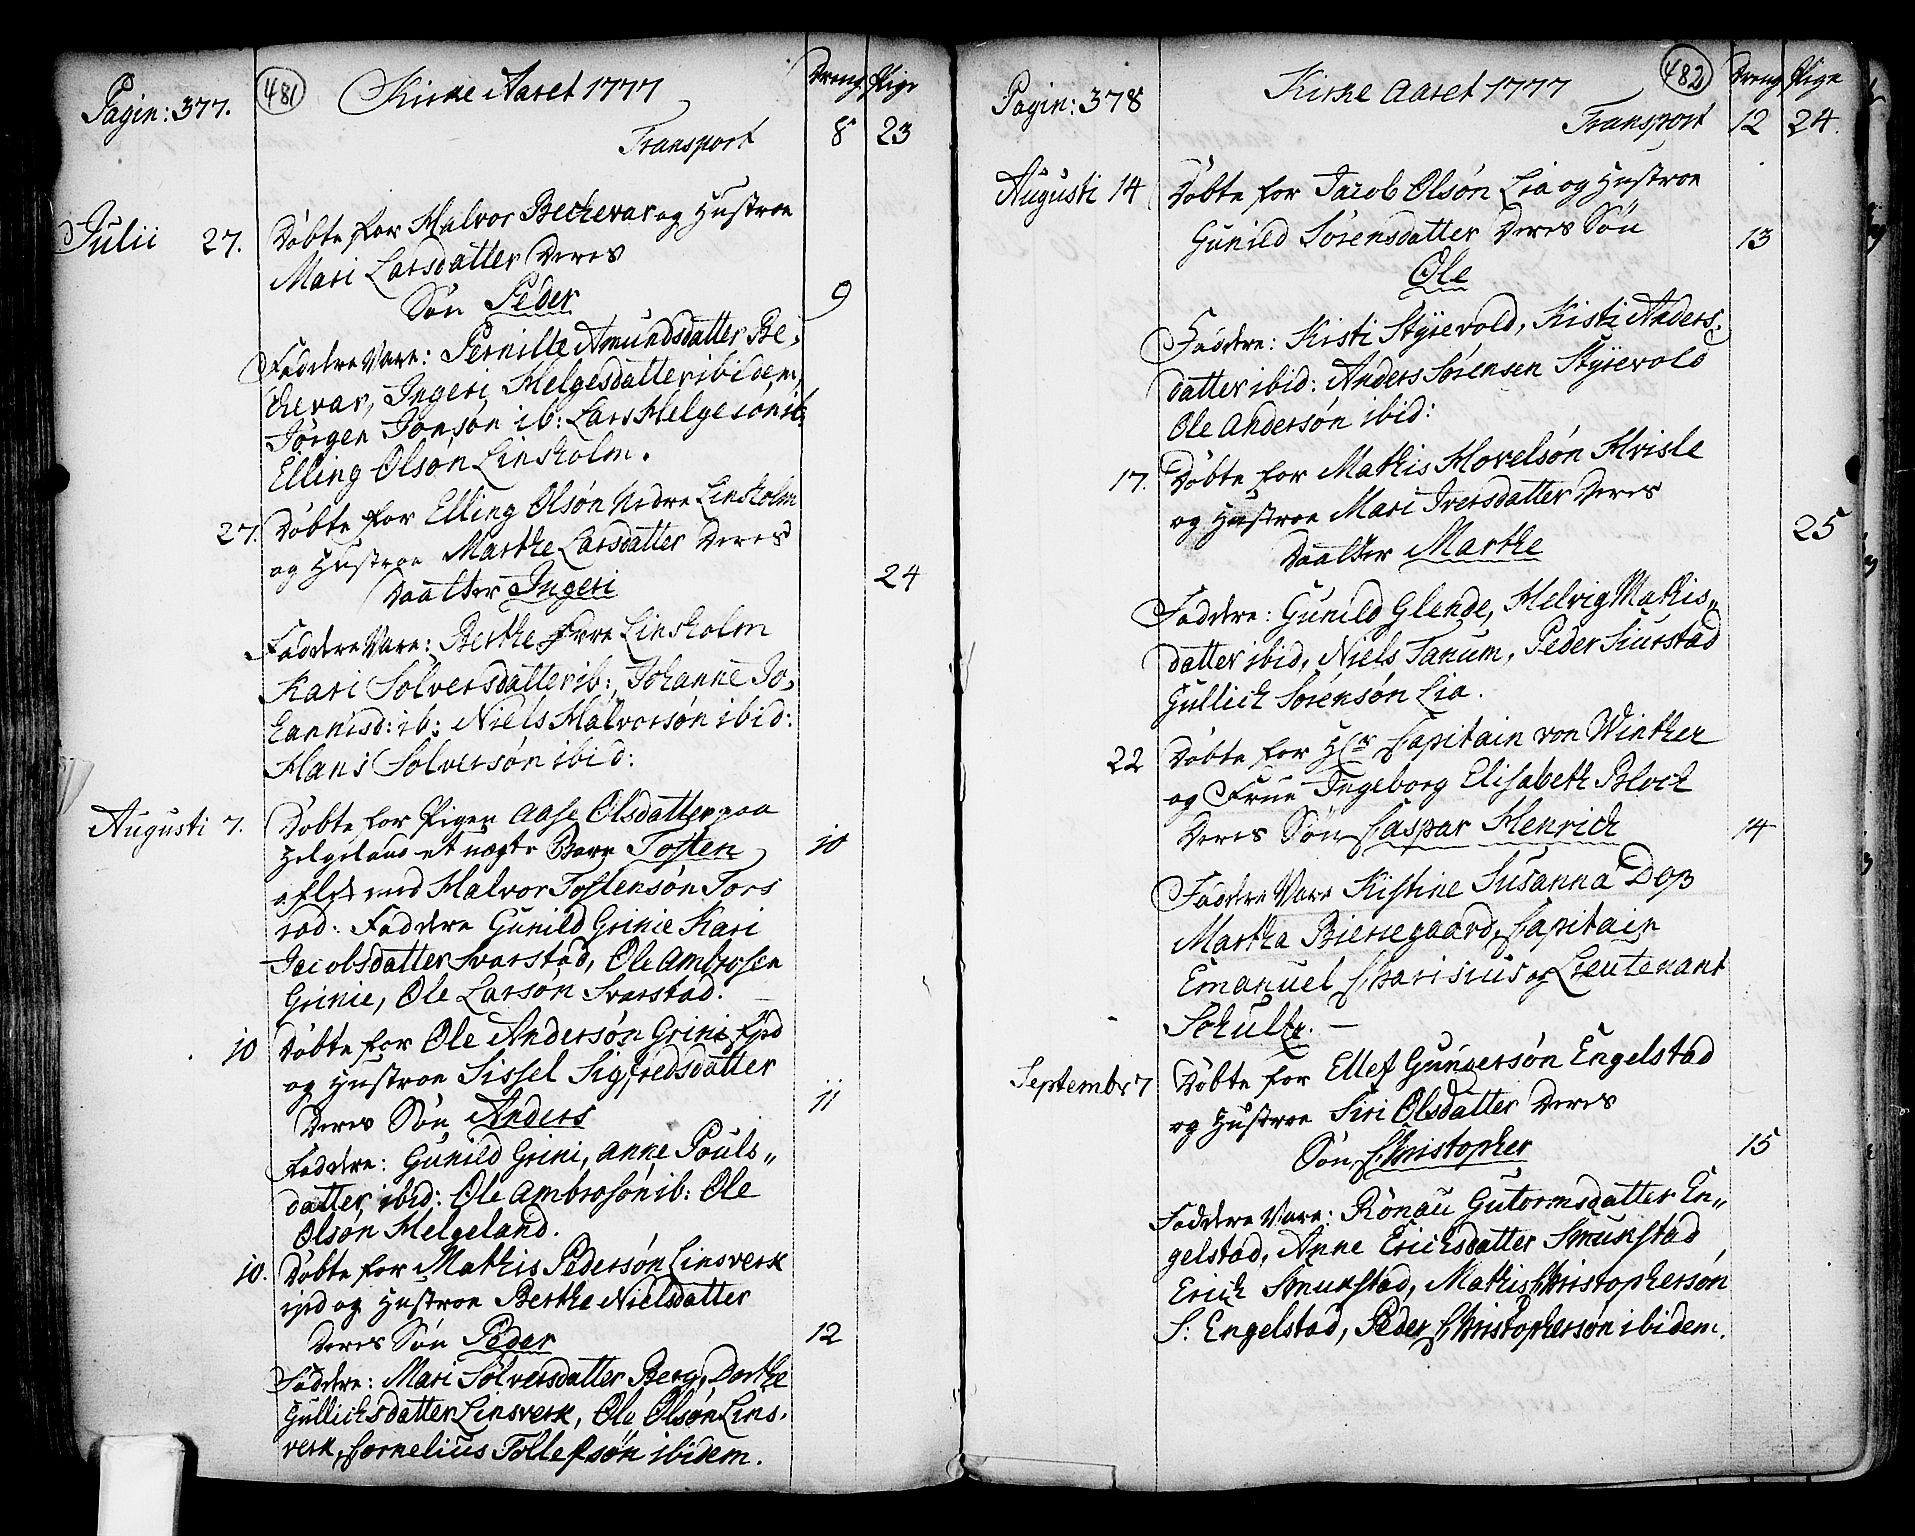 Pagin: 377.
481
Kirke Aaret 1777
Dreng Pige
Transport 8 23
Julii 27. Døbte for Halvor Bechevar og Hustroe
Mari Larsdatter Deres
Søn Peder 9
Faddere Vare: Pernille Amundsdatter Be-
chevar, Ingeri Helgesdatter ibidem,
Jørgen Jonsøn ib: Lars Helgesøn ib:
Elling Olsøn Linsholm.
27. Døbte for Elling Olsøn Nedre Linsholm
og Hustroe Marthe Larsdatter Deres
Daatter Ingeri 24
Faddere Vare: Berthe Øvre Linsholm
Kari Solversdatter ib:, Johanne Jo-
hannisd: ib: Niels Halvorsøn ibid:
Hans Solversøn ibid:
Augusti 7. Døbte for Pigen Aase Olsdatter paa
Helgeland et uægte Barn Tosten 10
aflet med Halvor Tostensøn Tors
rød. Faddere Gunild Grinie Kari
Jacobsdatter Svarstad, Ole Ambrosen
Grinie, Ole Larsøn Svarstad.
10 Døbte for Ole Andersøn Grini
og Hustroe Sissel Sigfredsdatter
Deres Søn Anders 11
Faddere: Gunild Grini, Anne Pouls-
datter, ibid: Ole Ambrosøn ib: Ole
Olsøn Helgeland.
10. Døbte for Mathis Pedersøn Linsverk
og Hustroe Berthe Nielsdatter
Deres Søn Peder 12
Faddere: Mari Sølversdatter Berg, Dorthe
Gullichsdatter Linsverk, Ole Olsøn Lins-
verk, Cornelius Tollefsøn ibidem.
Pagin: 378
Kirke Aaret 1777
482
Dreng Pige
Transport 12 24.
Augusti 14 Døbte for Jacob Olsøn Lia og Hustroe
Gunild Sørensdatter Deres Søn 13
Ole
Faddere: Kisti Styrevold, Kisti Anders-
datter ibid: Anders Sørensen Styrevold
Ole Andersøn ibid:
17. Døbte for Mathis Hovelsøn Hvisle
og Hustroe Mari Iversdatter Deres
Daatter Marthe 25
Faddere: Gunild Glende, Helvig Mathis-
datter ibid, Niels Tanum, Peder Siurstad
Gullich Sørensøn Lia.
22 Døbte for Hr Capitain von Winther
og Frue Ingeborg Elisabeth Bloch
Deres Søn Caspar Henrich 14
Faddere Vare Kistine Susanna Dop
Martha Bierregaard, Capitain
Emanuel Charisius og Lieutenant
Schultz. —
Septembr 7 Døbte for Ellef Gunersøn Engelstad
og Hustroe Siri Olsdatter Deres
Søn Christopher 15
Faddere Vare: Rønau Gutormsdatter En-
gelstad, Anne Erichsdatter Smukstad
Erich Smukstad, Mathis Christophersøn
S: Engelstad, Peder Christophersøn ibidem.